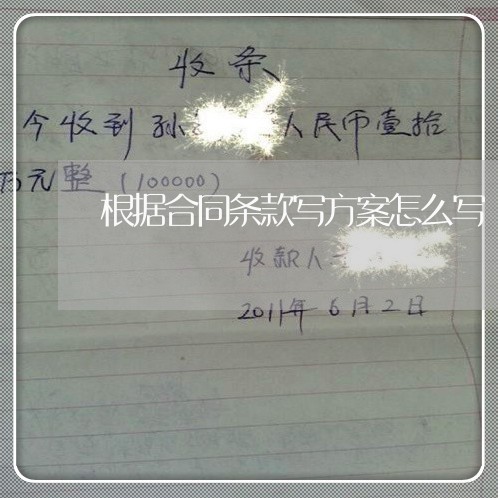 收条
今收到孙 人民币壹拾
万元整（100000）
根据合同条款写方案怎么写
收款人
2011年6月2日